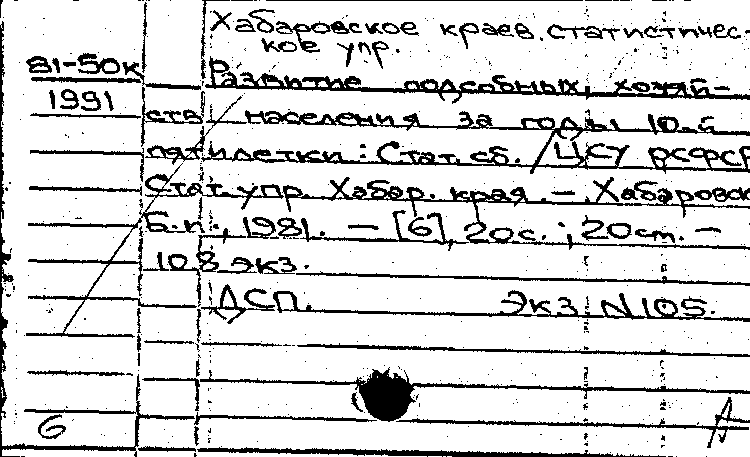 Хабаровское краев. статистичес-
кое упр.
81-50к
Развитие подсобных хозяй-
1991
ств населения за годы 10-й
пятилетки : Стат. сб. / ЦСУ РСФСР
Стат. упр. Хабар. края. – Хабаровск
Б.и., 1981. – [6], 20с. ; 20см. –
108 экз.
ДСП. Экз. N 105.
6